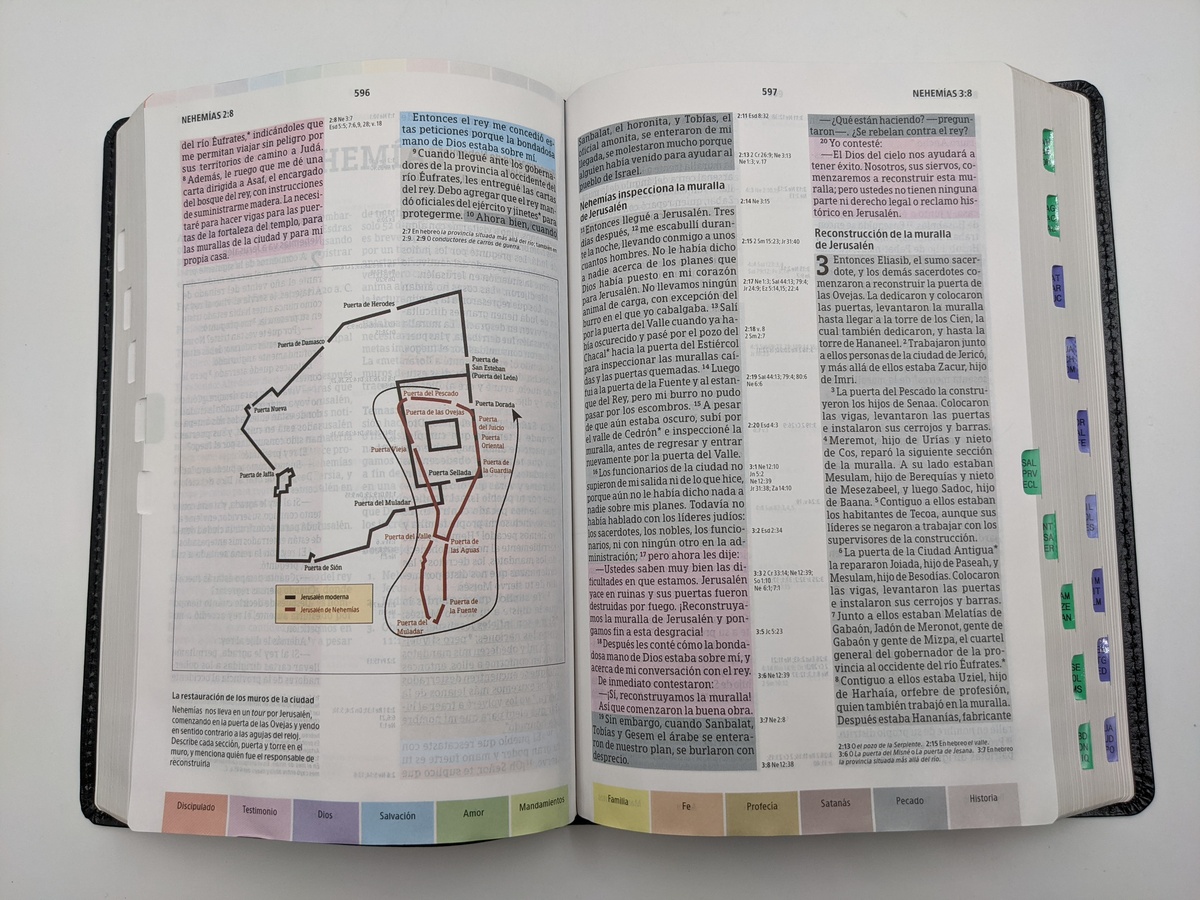 596
NEHEMÍAS 2:8
del río Éufrates,* indicándoles que
me permitan viajar sin peligro por
sus territorios de camino a Judá.
8 Además, le ruego que me dé una
carta dirigida a Asaf, el encargado
del bosque del rey, con instrucciones
de suministrarme madera. La necesi-
taré para hacer vigas para las puer-
tas de la fortaleza del templo, para
las murallas de la ciudad y para mi
propia casa.
2:8 Ne 3:7
Esd 5:5; 7:6,9, 28; v. 18
Entonces el rey me concedió es-
tas peticiones porque la bondadosa
mano de Dios estaba sobre mí.
9 Cuando llegué ante los goberna-
dores de la provincia al occidente del
río Éufrates, les entregué las cartas
del rey. Debo agregar que el rey man-
dó oficiales del ejército y jinetes* para
protegerme. 10 Ahora bien, cuando
2:7 En hebreo la provincia situada más allá del río; también en
2:9. 2:9 O conductores de carros de guerra.
Puerta de Herodes
Puerta de Damasco
Puerta de
San Esteban
(Puerta del León)
Puerta del Pescado
Puerta Dorada
Puerta Nueva
Puerta de las Ovejas
Puerta
del Juicio
Puerta
Oriental
Puerta Vieja
Puerta de
la Guardia
Puerta de Jaffa
Puerta Sellada
Puerta del Muladar
Puerta del Valle
Puerta de
las Aguas
Puerta de Sión
Jerusalén moderna
Jerusalén de Nehemías
Puerta de
la Fuente
Puerta del
Muladar
La restauración de los muros de la ciudad
Nehemías nos lleva en un tour por Jerusalén,
comenzando en la puerta de las Ovejas y yendo
en sentido contrario a las agujas del reloj.
Describe cada sección, puerta y torre en el
muro, y menciona quién fue el responsable de
reconstruirla
Discipulado
Testimonio
Dios
Salvación
Amor
Mandamientos
597
NEHEMÍAS 3:8
Sanbalat, el horonita, y Tobías, el
oficial amonita, se enteraron de mi
llegada, se molestaron mucho porque
alguien había venido para ayudar al
pueblo de Israel.
Nehemías inspecciona la muralla
de Jerusalén
11 Entonces llegué a Jerusalén. Tres
días después, 12 me escabullí duran-
te la noche, llevando conmigo a unos
cuantos hombres. No le había dicho
a nadie acerca de los planes que
Dios había puesto en mi corazón
para Jerusalén. No llevamos ningún
animal de carga, con excepción del
burro en el que yo cabalgaba. 13 Salí
por la puerta del Valle cuando ya ha-
bía oscurecido y pasé por el pozo del
Chacal* hacia la puerta del Estiércol
para inspeccionar las murallas caí-
das y las puertas quemadas. 14 Luego
fui a la puerta de la Fuente y al estan-
que del Rey, pero mi burro no pudo
pasar por los escombros. 15 A pesar
de que aún estaba oscuro, subí por
el valle de Cedrón* e inspeccioné la
muralla, antes de regresar y entrar
nuevamente por la puerta del Valle.
16 Los funcionarios de la ciudad no
supieron de mi salida ni de lo que hice,
porque aún no le había dicho nada a
nadie sobre mis planes. Todavía no
había hablado con los líderes judíos:
los sacerdotes, los nobles, los funcio-
narios, ni con ningún otro en la ad-
ministración; 17 pero ahora les dije:
—Ustedes saben muy bien las di-
ficultades en que estamos. Jerusalén
yace en ruinas y sus puertas fueron
destruidas por fuego. ¡Reconstruya-
mos la muralla de Jerusalén y pon-
gamos fin a esta desgracia!
18 Después les conté cómo la bonda-
dosa mano de Dios estaba sobre mí, y
acerca de mi conversación con el rey.
De inmediato contestaron:
—¡Sí, reconstruyamos la muralla!
Así que comenzaron la buena obra.
19 Sin embargo, cuando Sanbalat,
Tobías y Gesem el árabe se entera-
ron de nuestro plan, se burlaron con
desprecio.
2:11 Esd 8:32
2:13 2 Cr 26:9; Ne 3:13
Ne 1:3; v. 17
2:14 Ne 3:15
2:15 2 Sm 15:23; Jr 31:40
2:17 Ne 1:3; Sal 44:13; 79:4;
Jr 24:9; Ez 5:14,15; 22:4
2:18 v. 8
2 Sm 2:7
2:19 Sal 44:13; 79:4; 80:6
Ne 6:6
2:20 Esd 4:3
3:1 Ne 12:10
Jn 5:2
Ne 12:39
Jr 31:38; Za 14:10
3:2 Esd 2:34
3:3 2 Cr 33:14; Ne 12:39;
So 1:10
Ne 6:1; 7:1
3:5 Jc 5:23
3:6 Ne 12:39
3:7 Ne 2:8
3:8 Ne 12:38
—¿Qué están haciendo? —pregun-
taron—. ¿Se rebelan contra el rey?
20 Yo contesté:
—El Dios del cielo nos ayudará a
tener éxito. Nosotros, sus siervos, co-
menzaremos a reconstruir esta mu-
ralla; pero ustedes no tienen ninguna
parte ni derecho legal o reclamo his-
tórico en Jerusalén.
Reconstrucción de la muralla
de Jerusalén
3 Entonces Eliasib, el sumo sacer-
dote, y los demás sacerdotes co-
menzaron a reconstruir la puerta de
las Ovejas. La dedicaron y colocaron
las puertas, levantaron la muralla
hasta llegar a la torre de los Cien, la
cual también dedicaron, y hasta la
torre de Hananeel. 2 Trabajaron junto
a ellos personas de la ciudad de Jericó,
y más allá de ellos estaba Zacur, hijo
de Imri.
3 La puerta del Pescado la constru-
yeron los hijos de Senaa. Colocaron
las vigas, levantaron las puertas
e instalaron sus cerrojos y barras.
4 Meremot, hijo de Urías y nieto
de Cos, reparó la siguiente sección
de la muralla. A su lado estaban
Mesulam, hijo de Berequías y nieto
de Mesezabeel, y luego Sadoc, hijo
de Baana. 5 Contiguo a ellos estaban
los habitantes de Tecoa, aunque sus
líderes se negaron a trabajar con los
supervisores de la construcción.
6 La puerta de la Ciudad Antigua*
la repararon Joiada, hijo de Paseah, y
Mesulam, hijo de Besodías. Colocaron
las vigas, levantaron las puertas
e instalaron sus cerrojos y barras.
7 Junto a ellos estaban Melatías de
Gabaón, Jadón de Meronot, gente de
Gabaón y gente de Mizpa, el cuartel
general del gobernador de la pro-
vincia al occidente del río Éufrates.*
8 Contiguo a ellos estaba Uziel, hijo
de Harhaía, orfebre de profesión,
quien también trabajó en la muralla.
Después estaba Hananías, fabricante
2:13 O el pozo de la Serpiente. 2:15 En hebreo el valle.
3:6 O La puerta de Misné o La puerta de Jesana. 3:7 En hebreo
la provincia situada más allá del río.
Familia
Fe
Profecía
Satanás
Pecado
Historia
SAL
PRV
ECL